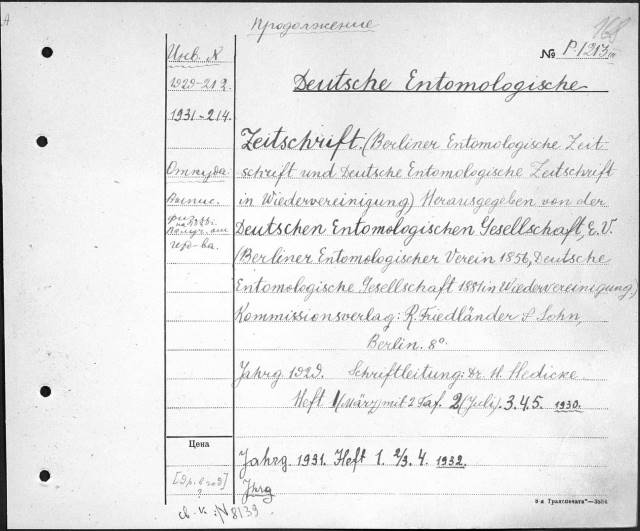 Продолжение
168
№ P-1213 III
Инв. №
1929-212.
1931-214.
Откуда.
Выпис.
Цена
[Эр. в год]
?
св. к: N 8139
Deutsche Entomologische
Zeitschrift. (Berliner Entomologische Zeit-
schrift und Deutsche Entomologische Zeitschrift
in Wiedervereinigung) Herausgegeben von der
Deutschen Entomologischen Gesellschaft, E.V.
(Berliner Entomologischer Verein 1856, Deutsche
Entomologische Gesellschaft 1881 in Wiedervereinigung)
Kommissionsverlag: R. Friedländer & Sohn,
Berlin. 8°.
Jahrg 1929. Schriftleitung: Dr. H. Hedicke.
Heft 1 (März) mit 2 Taf. 2 (Juli). 3. 4. 5. 1930.
Jahrg. 1931. Heft 1. 2/3. 4. 1932.
Jhrg